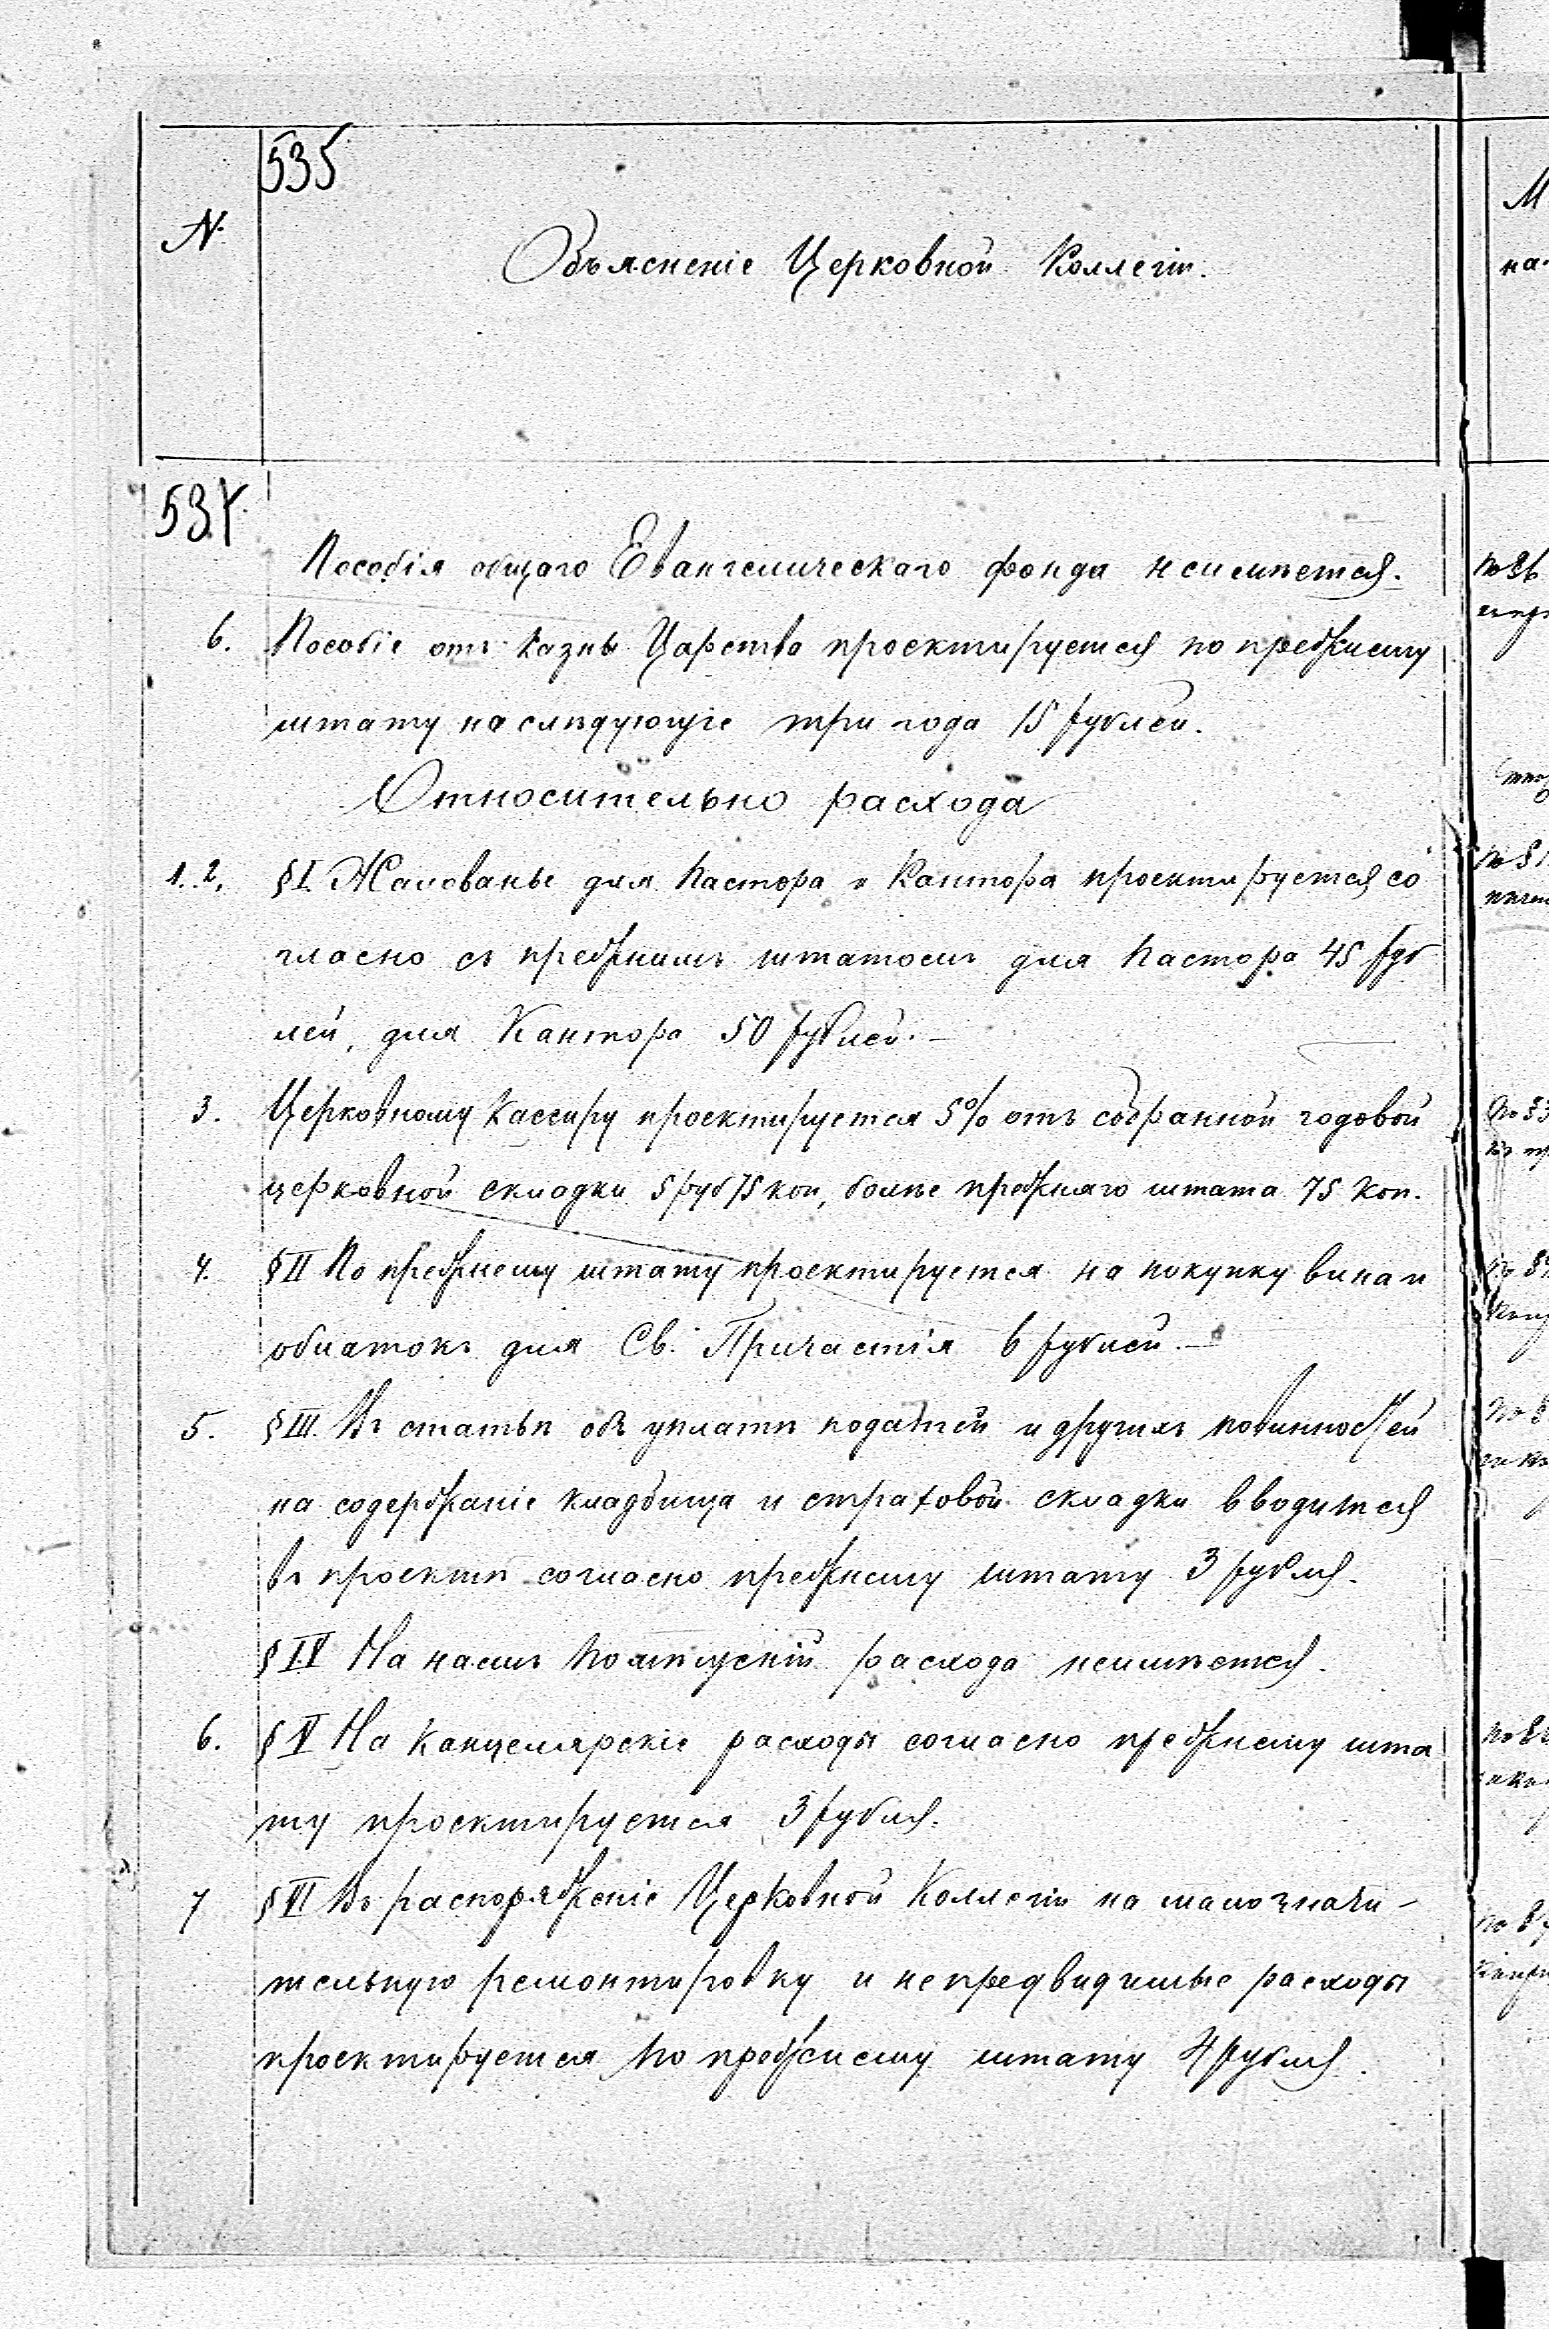 535
N.
Объясненіе Церковной Коллегіи.
534.
Пособія общаго Евангелическаго фонда неимѣется.
6. Пособіе отъ Казны Царства проектируется по прежнему
штату на слѣдующіе три года 15 рублей.
Относительно расхода
1. 2. § I. Жалованье для Пастора и Кантора проектируется со
гласно съ прежнимъ штатомъ для Пастора 45 руб
лей, для Кантора 50 рублей. —
3. Церковному Кассиру проектируется 5% отъ собранной годовой
церковной складки 5 руб 75 коп, болѣе прежняго штата 75 коп.
4. § II По прежнему штату проектируется на покупку вина и
облатокъ для Св. Причастія 6 рублей. —
5. § III. Въ статьѣ объ уплатѣ податей и другихъ повинностей
на содержаніе кладбища и страховой складки вводится
въ проектѣ согласно прежнему штату 3 рубля.
§ IV На наемъ расхода неимѣется.
6. § V На Канцелярскіе расходы согласно прежнему шта
ту проектируется 3 рубля.
7 § VI Въ распоряженіе Церковной Коллегіи на малозначи-
тельную ремонтировку и непредвидимые расходы
проектируется по прежнему штату 4 рубля.